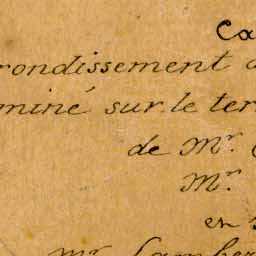 Ca
rondissement d
miné sur le ter
de Mr.
Mr.
en
Mr. Lamber